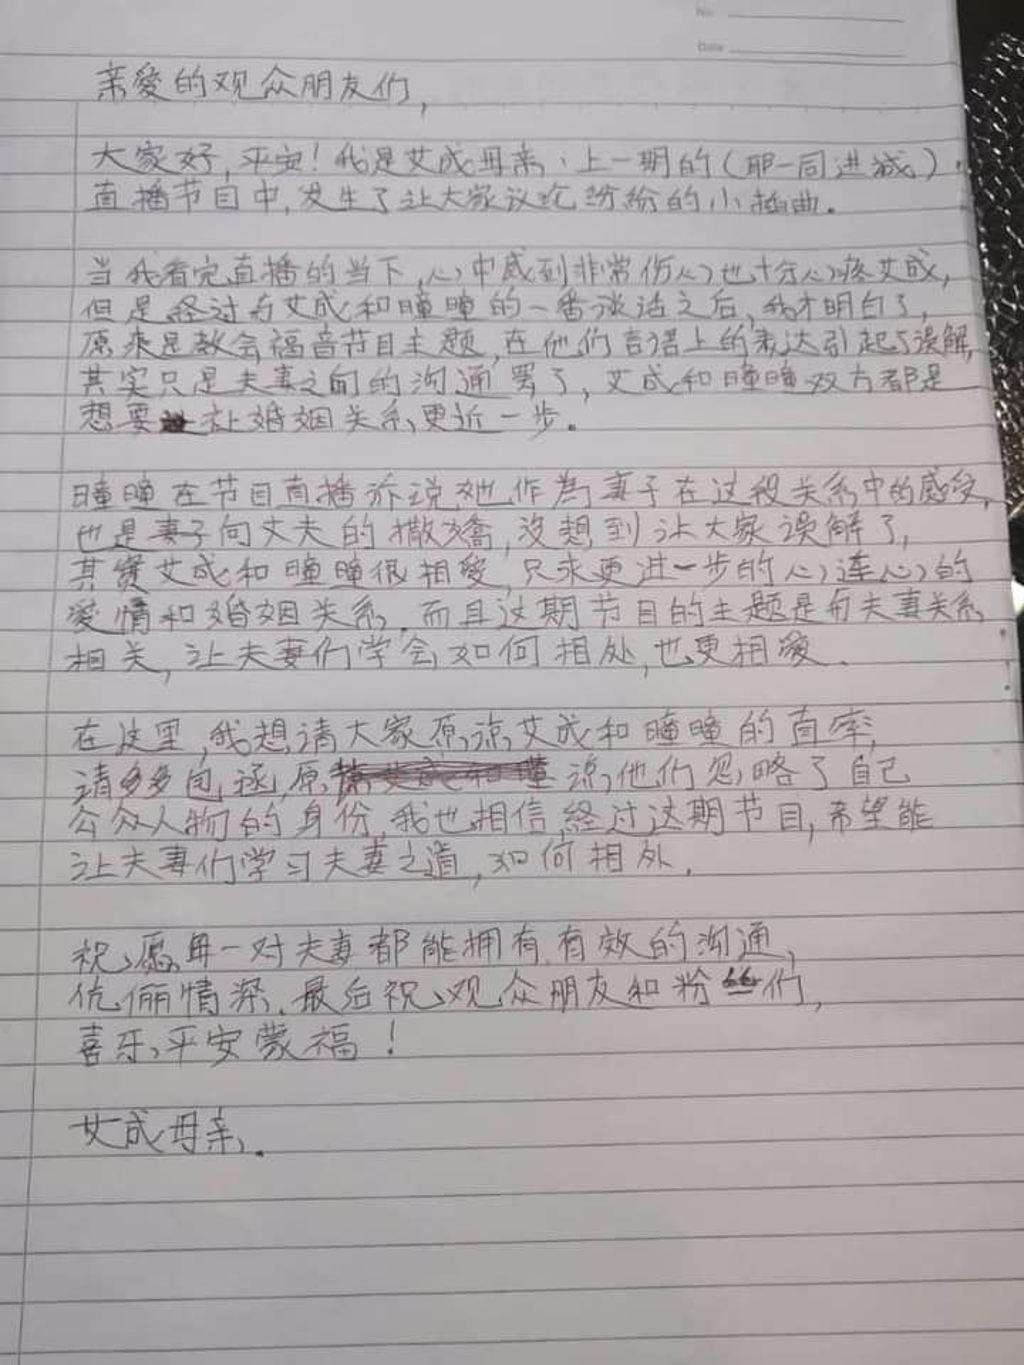 No.
Date
亲爱的观众朋友们,
大家好,平安!我是艾成母亲、上一期的(耶一同进城)
直播节目中,发生了让大家议论纷纷的小插曲。
当我看完直播的当下,心中感到非常伤心也十分心疼艾成,
但是经过与艾成和瞳瞳的一番谈话之后,我才明白了,
原来是教会福音节目主题,在他们言语上的表达引起了误解,
其实只是夫妻之间的沟通罢了,艾成和瞳瞳双方都是
想要让婚姻关系更近一步。
瞳瞳在节目直播所说她作為妻子在这段关系中的感受,
也是妻子向丈夫的撒嬌,沒想到让大家误解了,
其實艾成和瞳瞳很相愛,只求更进一步的心连心的
愛情和婚姻关系,而且这期节目的主题是和夫妻关系
相关,让夫妻们学会如何相处,也更相愛.
在这里,我想请大家原谅艾成和瞳瞳的直率,
请多多包涵,原谅他们忽略了自己
公众人物的身份,我也相信,经过这期节目,希望能
让夫妻们学习夫妻之道,如何相处.
祝愿每一对夫妻都能拥有有效的沟通,
伉俪情深.最后祝观众朋友和粉丝们,
喜乐,平安蒙福!
艾成母亲.